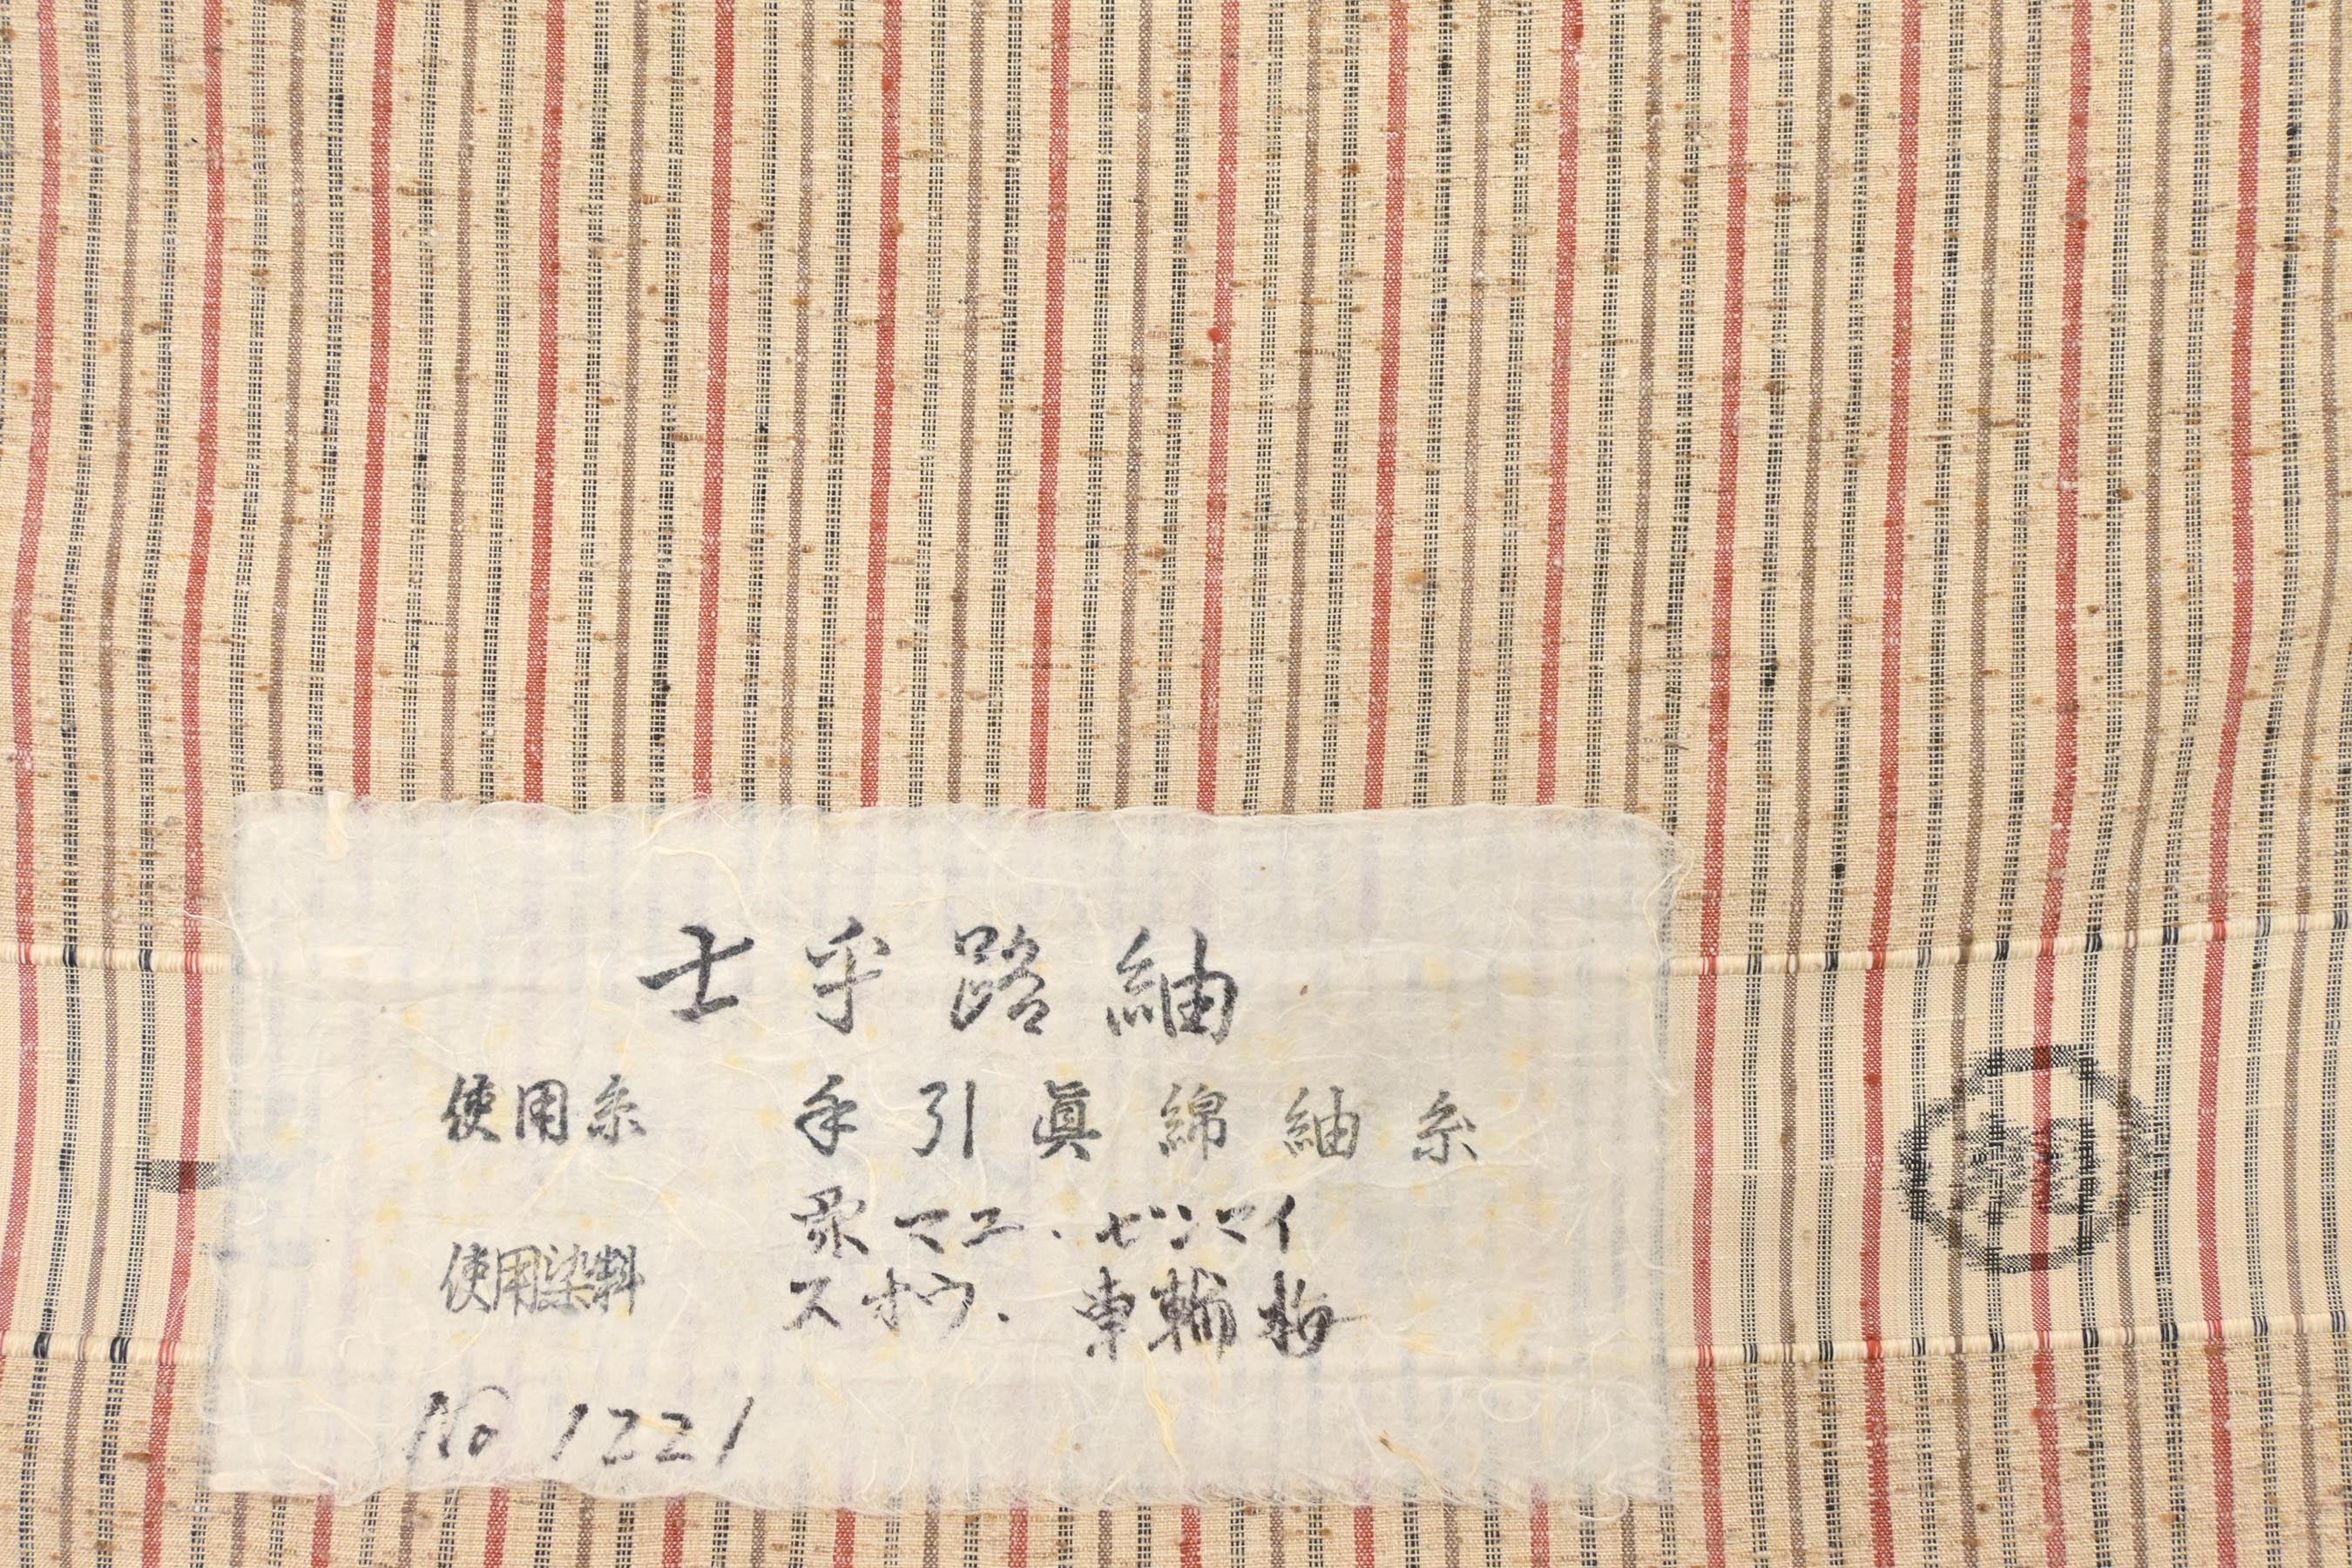 士乎路紬
使用糸 手引眞綿紬糸
使用染料 マユ・ゼンマイ
スオウ・車輪梅
No 1221